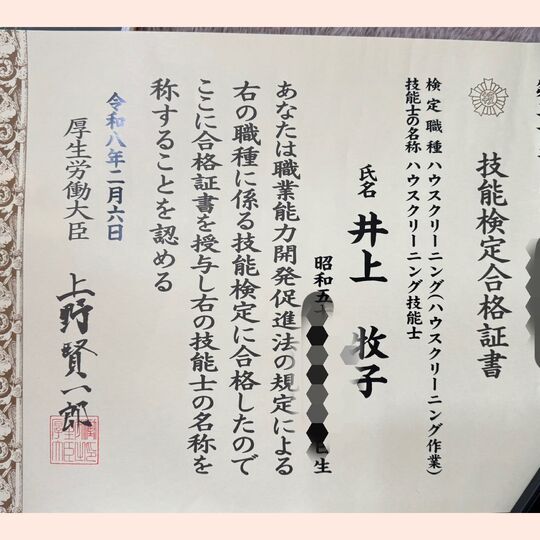 技能検定合格証書
検定職種 ハウスクリーニング(ハウスクリーニング作業)
技能士の名称 ハウスクリーニング技能士
氏名 井上 牧子
昭和五
生
あなたは職業能力開発促進法の規定による
右の職種に係る技能検定に合格したので
ここに合格証書を授与し右の技能士の名称を
称することを認める
令和八年二月六日
厚生労働大臣
上野賢一郎